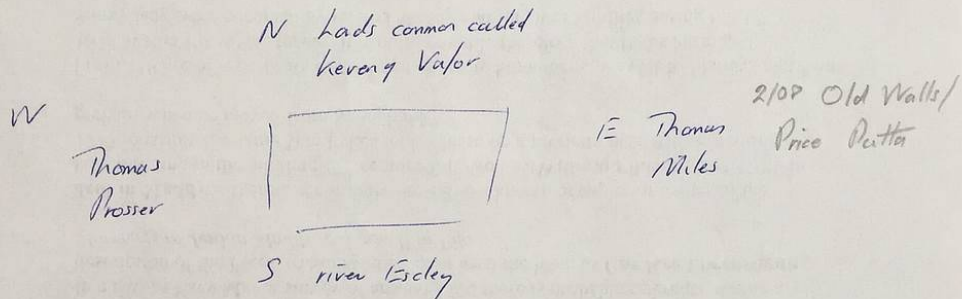 N Lords common called
Keveny Vafor
W
Thomas
Prosser
E Thomas
Miles
2/08 Old Walls/
Price Partha
S river Escley